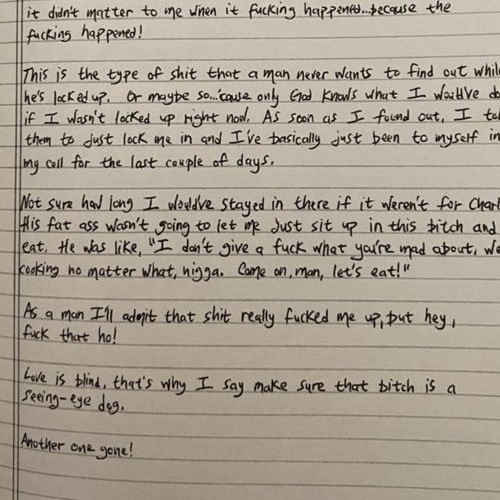 it didn't matter to me when it fucking happened...because the
fucking happened!
This is the type of shit that a man never wants to find out while
he's locked up. Or maybe so...'cause only God knows what I would've do
if I wasn't locked up right now. As soon as I found out, I tol
them to just lock me in and I've basically just been to myself in
my cell for the last couple of days.
Not sure how long I would've stayed in there if it weren't for Charl
His fat ass wasn't going to let me just sit up in this bitch and
eat. He was like, "I don't give a fuck what you're mad about, We
cooking no matter what, nigga. Come on, man, let's eat!"
As a man I'll admit that shit really fucked me up, but hey,
fuck that ho!
Love is blind, that's why I say make sure that bitch is a
seeing-eye dog.
Another one gone!